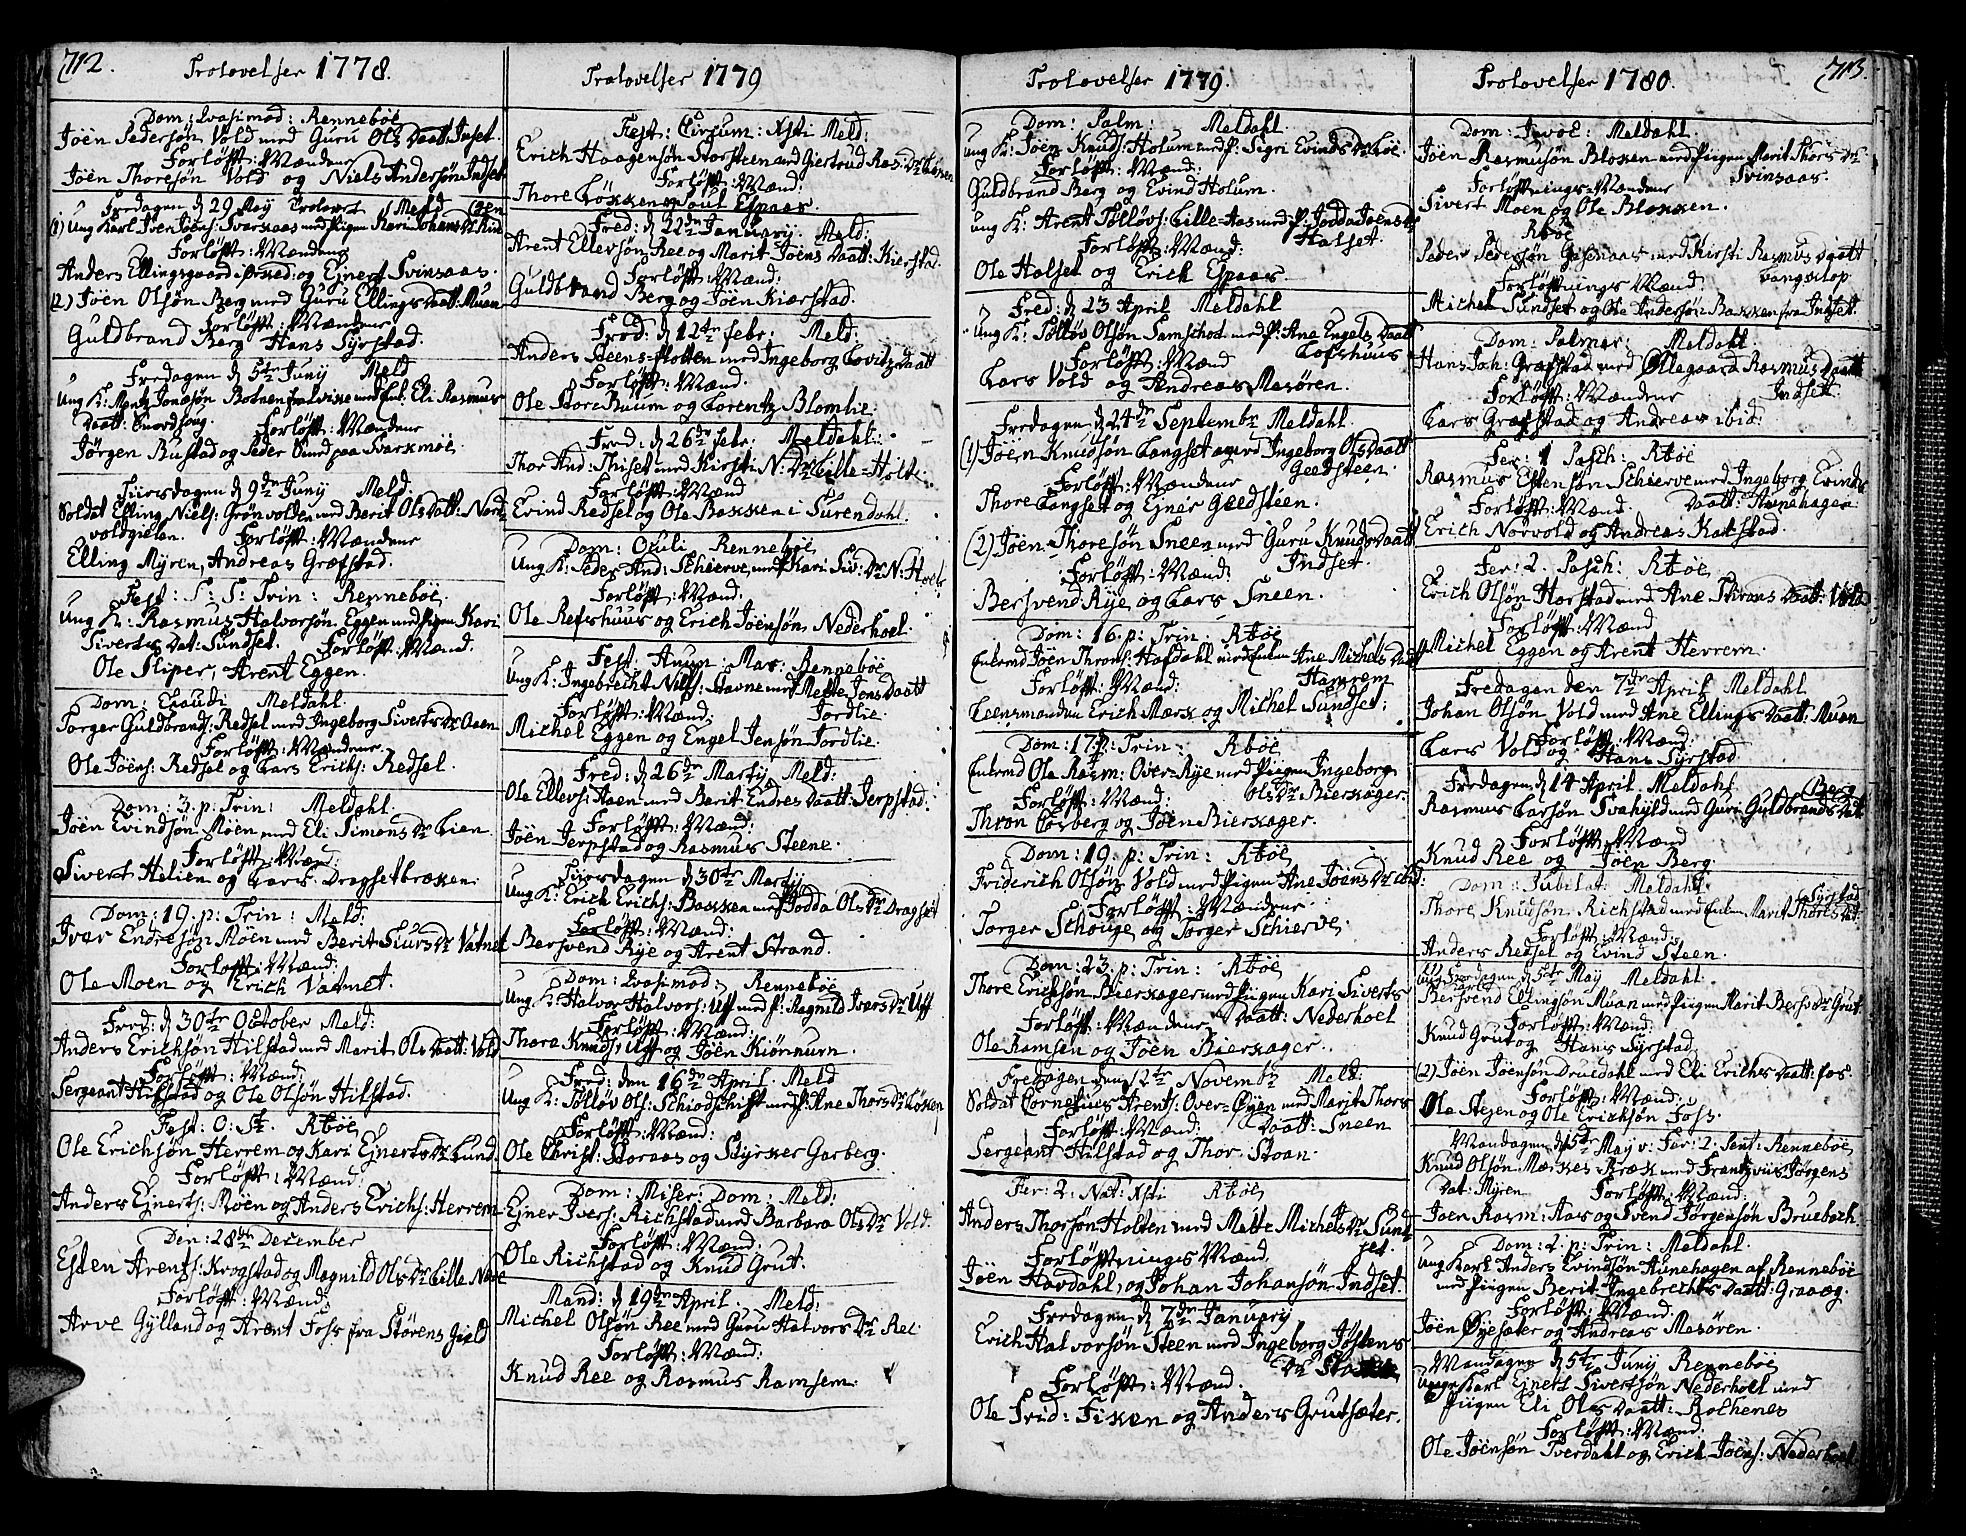 712.
Trolovelser 1778.
Dom: Qvasimod: Renneböe
Jöen Pedersön Vold med Guru Ols Daatt: Inset.
Forlöfft: Mændene
Jöen Thoresön Vold og Niels Andersön Indset
Fredagen d 29 May Trolovet Meld
(1) Ung Karl Iver Jöens: Svarxaas med Pigen Kari Johans Dr
Forlöfft: Mændene
Anders Ellingsgaard og Ejnert Svinsaas.
(2) Jöen Olsön Berg med Guru Ellings Daatt: Muan
Forlöfft: Mændene
Guldbrand Berg Hans Syrstad.
Fredagen d 5te Juny Meld
Ung K: Jonasön med Enk. Eli Rasmus
Daatt: Forlöfft: Mændene
Jörgen Rustad og Peder paa Svarxmöe
Tiirsdagen d 9de Juny Meld.
Soldat Elling Niels: Grönvolden med Berit Ols Datt: Nord
voldgielen. Forlöfft: Mændene
Elling Myren, Andreas Græfstad.
Fest: S: S: Trin: Renneböe
Ung K: Rasmus Halvorsön Eggen med Pigen Kari
Siverts Dat: Sundset. Forlöfft: Mænd.
Ole Sliper, Arent Eggen.
Dom: Exaudi Meldahl
Torger Guldbrands: Redsel med Ingeborg Siverts Dr Aaen
Forlöfft: Mændene
Ole Jöens: Redsel og Lars Erichs: Redsel.
Dom: 3. p: Trin: Meldahl.
Jöen Evindsön Möen med Eli Simons Dr Lien
Forlöfft: Mænd:
Sivert Helien og Lars Dragsetbræxen:
Dom: 19. p: Trin: Meld:
Ivar Endresön Möen med Berit Siurs Dr Vatnet
Forlöfft: Mænd:
Ole Moen og Erich Vatnet.
Fred: d 30te October Meld:
Anders Erichsön Hilstad med Marit Ols Daatt: Vold
Forlöfft: Mænd:
Sergeant Hilstad og Ole Olsön Hilstad.
Fest: O: St: Rböe
Ole Erichsön Herrem og Kari Ejnerts Dr Lund.
Forlöfft: Mænd:
Anders Ejnerts: Möen og Anders Erichs: Herrem
Den: 28de December
Esten Arents: Krogstad og Magnild Ols Dr Lille
Forlöfft: Mænd:
Arve Gylland og Arent Foss fra Störens Gield
Trolovelser 1779
Fest: Circum: Xsti Meld:
Erich Haagensön Storsteen med Giertrud Ras: Dr Löxen
Forlöfft: Mænd:
Thore Löxxen og Poul Espaas.
Fred: d 22de Januarij. Meld:
Arent Ellevsön Ree og Marit Jöens Daatt: Kierstad.
Forlöfft: Mænd:
Guldbrand Berg og Jöen Kiærstad.
Fred: d 12te febr: Meld:
Anders Steens-Flotten med Ingeborg Lovitz Daatt
Forlöfft: Mænd.
Ole Store Buum og Lorentz Blomlie.
Fred: d 26de febr: Meldahl:
Thor And: Thiset med Kirsti N: Dr Lille-Holt:
Forlöfft: Mænd
Evind Redsel og Ole Baxxen i Surendahl.
Dom: Oculi Renneböe
Ung K: Peder And: Schierve, med Kari Siv: Dr N: Hoel
Forlöfft: Mænd.
Ole Refshuus og Erich Jöensön Nederhoel.
Fest: Anun: Mar: Renneböe
Ung K: Ingebrecht Nils: Havne med Mette Jens Daatt
Forlöfft: Mænd: Jordlie
Michel Eggen og Engel Jensön Jordlie.
Fred: d 26de Martij Meld:
Ole Ellevs: Aaen med Berit Endres Daatt: Jerpstad.
Forlöfft: Mænd:
Jöen Jerpstad og Rasmus Steene.
Tiirsdagen d 30te Martij
Ung K: Erich Erichs: Baxxen med Jodda Ols Dr Dragset
Forlöfft: Mænd:
Bersvend Rye og Arent Strand.
Dom: Qvasimod: Renneböe
Ung K: Halvor Halvors: Uff med P: Magnild Ivers Dr Uff
Forlöfft: Mænd:
Thore Knuds: Uff og Jöen Kiönnurn.
Fred: den 16de April. Meld
Ung K: Tölløv Ols: Schiodschift med P: Ane Thors Dr Löxen
Forlöfft: Mænd:
Ole Christ: Storaas og Styrxer Garberg.
Dom: Miser: Dom: Meld:
Ejner Ivers: Richstad med Barbara Ols Dr Vold.
Forlöfft: Mænd:
Ole Richstad og Knud Grut.
Mand: d 19de April. Meld:
Michel Olsön Ree med Guru Halvors Dr Ree
Forlöfft: Mænd:
Knud Ree og Rasmus Ramsem.
Trolovelser 1779.
Dom: Palm: Meldahl
Ung K: Jöen Knuds: Holum med P: Sigri Evinds Dr Löe.
Forlöfft: Mænd:
Guldbrand Berg og Evind Holum.
Ung K: Arent Tölløvs: Lille-Aas med P: Jodda Joens Dr
Forlöfft: Mænd: Halset.
Ole Halset og Erich Espaas
Fred: d 23 April Meldahl
Ung K: Tölløv Olsön Samschot med P: Ane Engels Daatt
Forlöfft: Mænd Lofshuus
Lars Vold og Andreas Masören.
Fredagen d 24de Septembr Meldahl.
(1) Jöen Knudsön Langset med Ingeborg Ols Daatt
Forlöfft: Mændene Geedsteen.
Thore Langset og Ejner Geedsteen.
(2) Jöen Thoresön Sneen med Guru Knuds Daatt
Forlöfft: Mænd: Indset.
Bersvend Rye, og Lars Sneen.
Dom: 16. p: Trin: Rböe
Enkemd Jöen Throns: Hafdahl med Enken Ane Michels Datt
Forlöfft: Mænd: Hamrem
Leensmanden Erich Mærx og Michel Sundset.
Dom: 17. p: Trin: Rböe
Enkemd Ole Rasm: Over-Rye med Pigen Ingeborg
Forlöfft: Mænd: Ols Dr Bierxager.
Thron Loxberg og Jöen Bierxager.
Dom: 19. p: Trin: Rböe
Friderich Olsön Vold med Pigen Ane Jöens Dr ibid:
Forlöfft: Mændene
Torger Schouge og Torger Schierve.
Dom: 23. p: Trin: Rböe
Thore Erichsön Bierxager med Pigen Kari Siverts
Forlöfft: Mændene Daatt: Nederhoel
Ole Ramsen og Jöen Bierxager.
Fredagen den 12te Novembr Meld:
Soldat Cornelius Arents: Over-Öyen med Marit Thors
Forlöfft: Mænd: Daatt: Sneen
Sergeant Hilstad og Thor Stoan.
Fer: 2. Nat: Xsti Rböe
Anders Thorsön Holten med Mette Michels Dr Sund
Forlöfftnings Mænd. set.
Jöen Havdahl, og Johan Johansön Indset.
Fredagen d 7de Januarij
Erich Halvorsön Steen med Ingeborg Jöstens
Forlöfft: Mænd. Dr
Ole Frid: Fixen og Anders Grutsæter.
713.
Trolovelser 1780.
Dom: Invoc: Meldahl.
Jöen Rasmusön Bloxen med Pigen Marit Thors Dr
Forlöfftnings-Mændene Svinsaas.
Sivert Moen og Ole Bloxxen.
Rböe
Peder Pedersön Gaschaas med Kirsti Rasmus Daatt
Forlöfftnings Mænd. Vangslop
Michel Sundset og Ole Andersön Baxxen fra Indset.
Dom: Palmar: Meldahl
Hans Joh: Græfstad med Ollegaard Rasmus Daatt
Forlöfft: Mændene Indset.
Lars Græfstad og Andreas ibid:
Fer: 1 Pasch: Rböe
Rasmus Estensön Schierve med Ingeborg Evinds
Forlöfft: Mænd. Daatt: Aunehagen
Erich Norvold og Andreas Kaxstad
Fer: 2. Pasch: Rböe
Erich Olsön Horstad med Ane Throns Daatt: Vold
Forlöfft: Mænd
Michel Eggen og Arent Herrem.
Fredagen den 7de April Meldahl
Johan Olsön Vold med Ane Ellings Daatt: Muan
Forlöfft: Mænd:
Lars Vold og Hans Syrstad.
Fredagen d 14 April. Meldahl (Berg
Rasmus Larsön Svahyld med Guru Guldbrands Datt
Forlöfft: Mænd
Knud Ree og Jöen Berg.
Dom: Jubilat: Meldahl (Syrstad
Thore Knudsön Richstad med Enken Marit Thores Dat:
Forlöfft: Mænd:
Anders Redsel og Evind Steen.
(1) Fredagen d 5te May Meldahl.
Ung Karl Bersvend Ellingsön Muan med Pigen Marit Bersv: Dr Grut.
Forlöfft: Mænd:
Knud Grut og Hans Syrstad
(2) Jöen Jöensön Druedahl med Eli Erichs Daatt: Fos.
Forlöfft: Mænd:
Ole Stejen og Ole Erichsön Foss.
Mandagen d 15de May v: Fer: 2. Pent: Renneböe
Knud Olsön Mærxes Bræx med Frantzvus Jörgens
Dat: Myren Forlöfft: Mænd:
Joen Rasm: Aas og Svend Jörgensön Bruebach
Dom: 2. p: Trin: Meldahl.
Ung Karl Anders Evindsön Aunehagen af Renneböe
med Pigen Berit Ingebrechts Daatt: Graaeg.
Forlöfft: Mænd.
Jöen Öyesæter og Andreas Masören.
Mandagen d 5te Juny Renneböe
Unge Karl Ejnert Sivertsön Nederhoel med
Pigen Eli Ols Daatt: Rochenes
Forlöfft: Mænd.
Ole Jöensön Tverdahl og Erich Jöens: Nederhoel